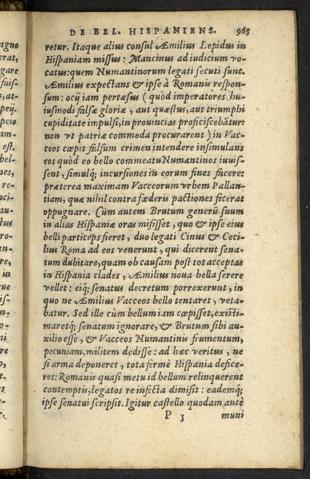 DE BEL. HISPANIENS. 965
retur. Itaque alius consul Æmilius Lepidus in
Hispaniam missus: Mancinus ad iudicium vo-
catus: quem Numantinorum legati secuti sunt.
Æmilius expectans & ipse à Romanis respon-
sum: ocij iam pertæsus (quòd imperatores huiusmodi
falsæ gloriæ, aut quæstus, aut triumphi
cupiditate impulsi, in prouincias proficiscebãtur:
non vt patriæ commoda procurarent) in Vac-
ceos cœpit falsum crimen intendere insimulans
eos quòd eo bello commeatu Numantinos iuuis-
sent, simulq; incursiones in eorum fines facere:
præterea maximam Vacceorum vrbem Pallan-
tiam, quæ nihil contra fœderis pactiones fecerat
oppugnare. Cùm autem Brutum generũ suum
in alias Hispaniæ oras misisset, quo & ipse eius
belli particeps fieret, duo legati Cinus & Ceci-
lius Roma ad eos venerunt, qui dicerent sena-
tum dubitare, quam ob causam post tot acceptas
in Hispania clades, Æmilius noua bella serere
vellet: eiq; senatus decretum porrexerunt, in
quo ne Æmilius Vacceos bello tentaret, veta-
batur. Sed ille cùm bellum iam cœpisset, existi-
maretq; senatum ignorare, & Brutum sibi au-
xilio esse, & Vacceos Numantinis frumentum,
pecuniam, militem dedisse: ad hæc veritus, ne
si arma deponeret, tota fermè Hispania defice-
ret: Romanis quasi metu id bellum relinquerent
contemptis; legatos re infecta dimisit: eademq;
ipse senatui scripsit. Igitur castello quodam antè
P 3 muni